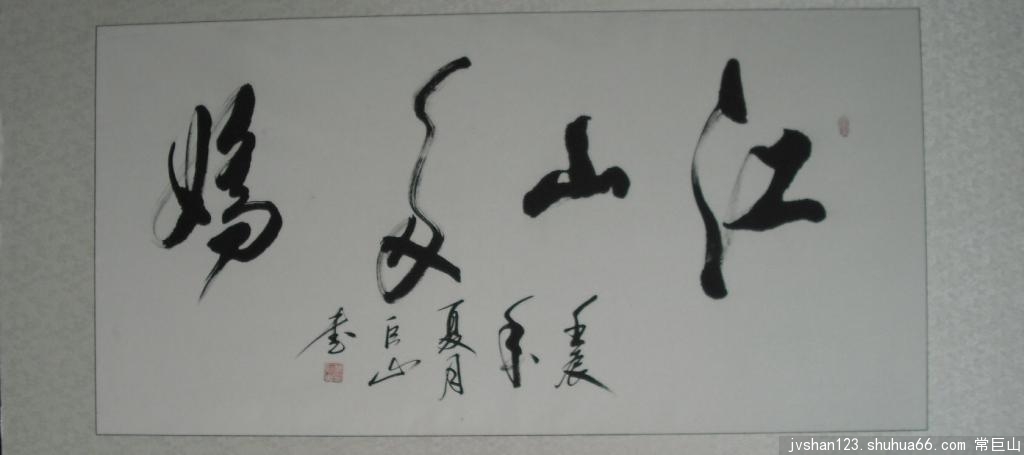 江山多娇
壬辰
年
夏月
巨山
书
jvshan123.shuhua66.com 常巨山